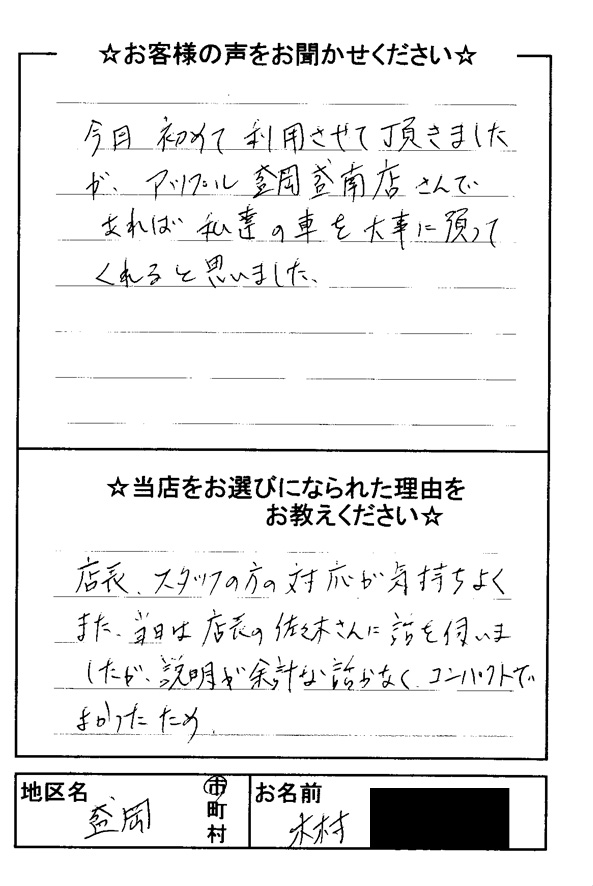 ☆お客様の声をお聞かせください☆
今日 初めて 利用させて頂きました
が、アップル 盛岡盛南店さんで
あれば 私達の車を大事に預って
くれると思いました、
☆当店をお選びになられた理由を
お教えください☆
店長、スタッフの方の対応が気持ちよく
また、当日は店長の佐々木さんに話を伺いま
したが、説明が余計な話がなく、コンパクトで
よかったため、
地区名 盛岡 市町村
お名前 木村